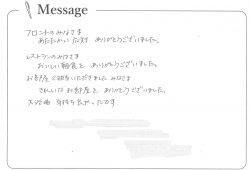 Message
フロントのみなさま
あたたかい 応対 ありがとうございました。
レストランのみなさま
おいしい 朝食を ありがとうございました。
お部屋ご担当いただきました みなさま
きれいな お部屋を ありがとうございました。
大浴場 気持ち良かったです